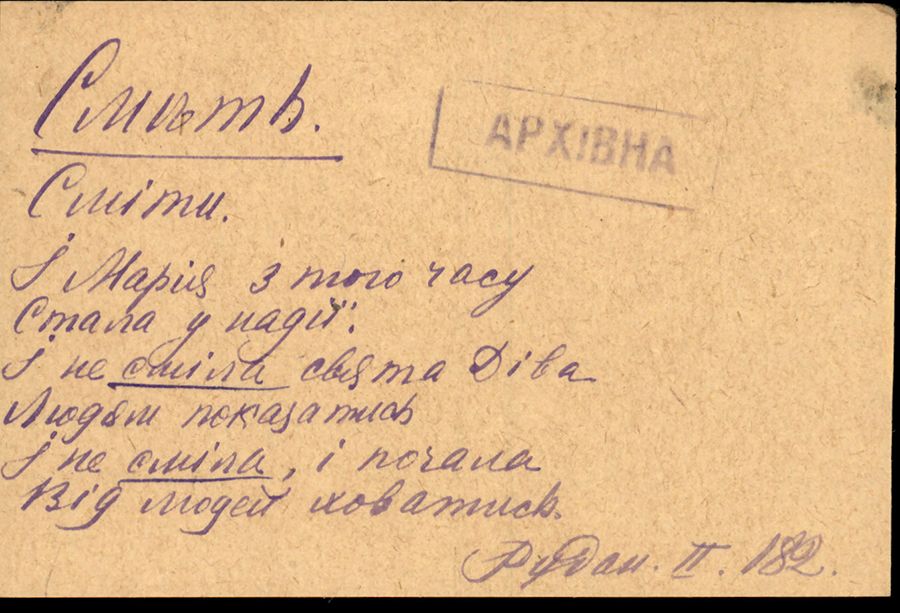 Смѣть.
АРХІВНА
Сміти.
І Марія з того часу
Стала у надії.
І не сміла свята Діва
Людям показатись
І не сміла, і почала
Від людей ховатись.
Рудан. II. 182.